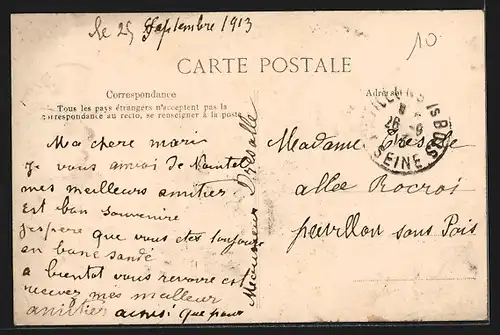 le 25 Septembre 1913
10
CARTE POSTALE
Correspondance
Tous les pays étrangers n'acceptent pas la
correspondance au recto, se renseigner à la poste
Ma chere mari
Je vous amioi de Nointel
mes meilleurs amitier
est bon souvenire
j'espere que vous etes toujours
en bone santé
a bientot vous revoire est
recever mes meilleur
amitier ainsi que pour
Monsieur
Adresse
Madame
allee Rocroi
pavillon sous Pois
SEINE